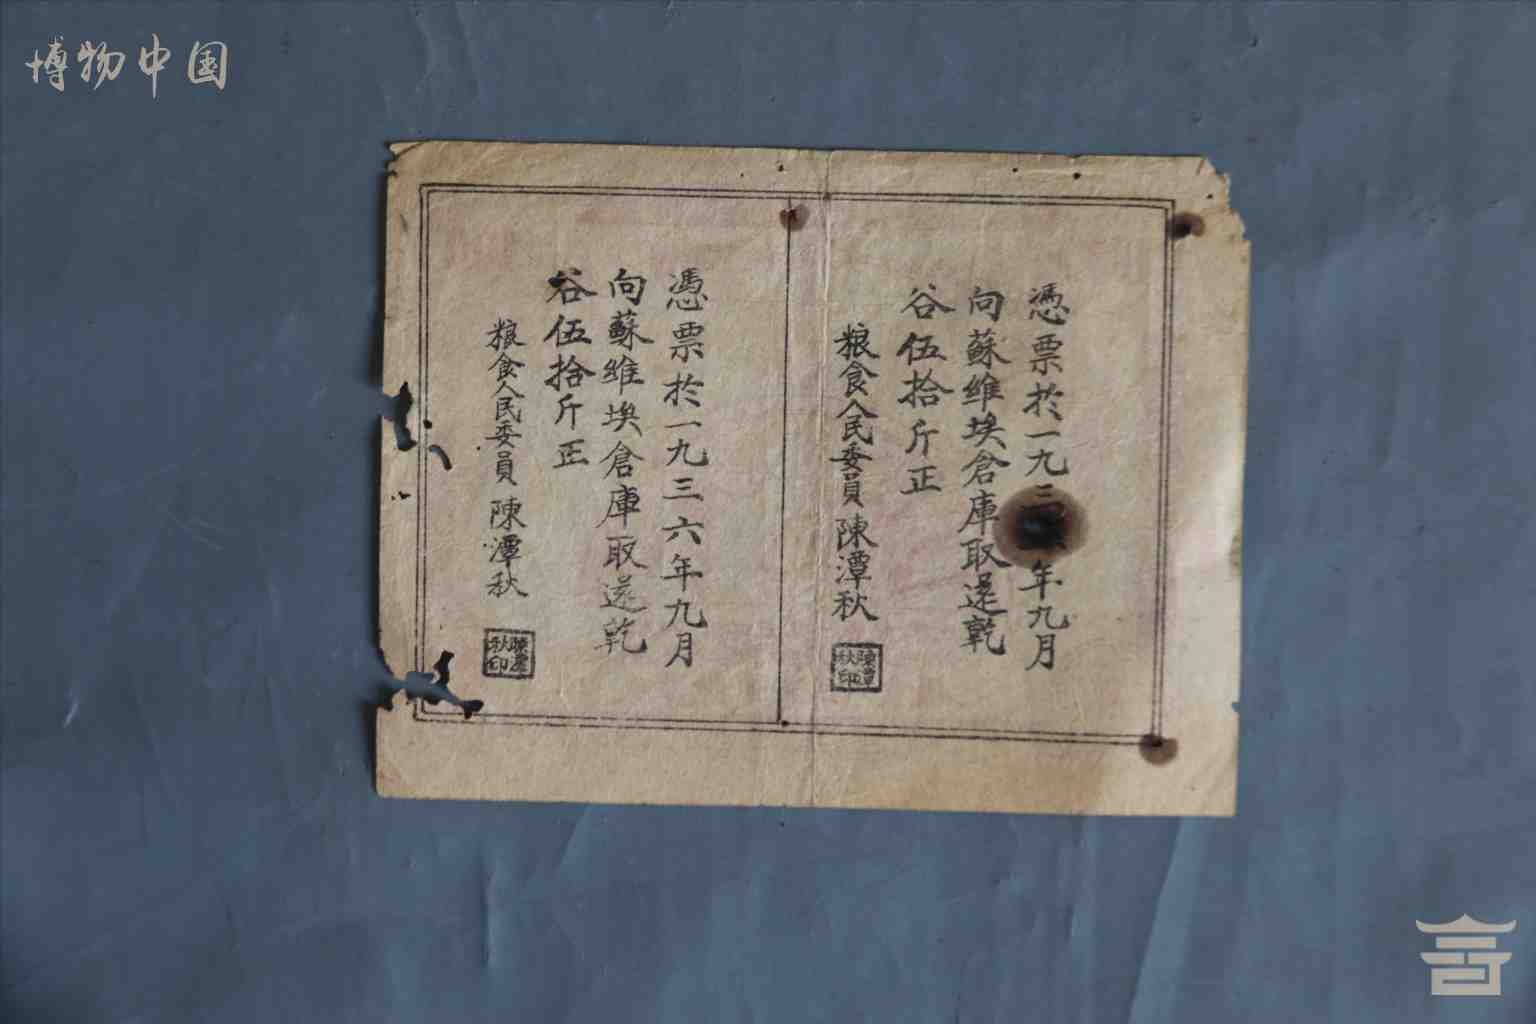 博物中国
憑票於一九三年九月
向蘇维埃倉庫取還乾
谷伍拾斤正
粮食人民委員 陳潭秋
陳潭秋印
憑票於一九三六年九月
向蘇维埃倉庫取還乾
谷伍拾斤正
粮食人民委員 陳潭秋
陳潭秋印